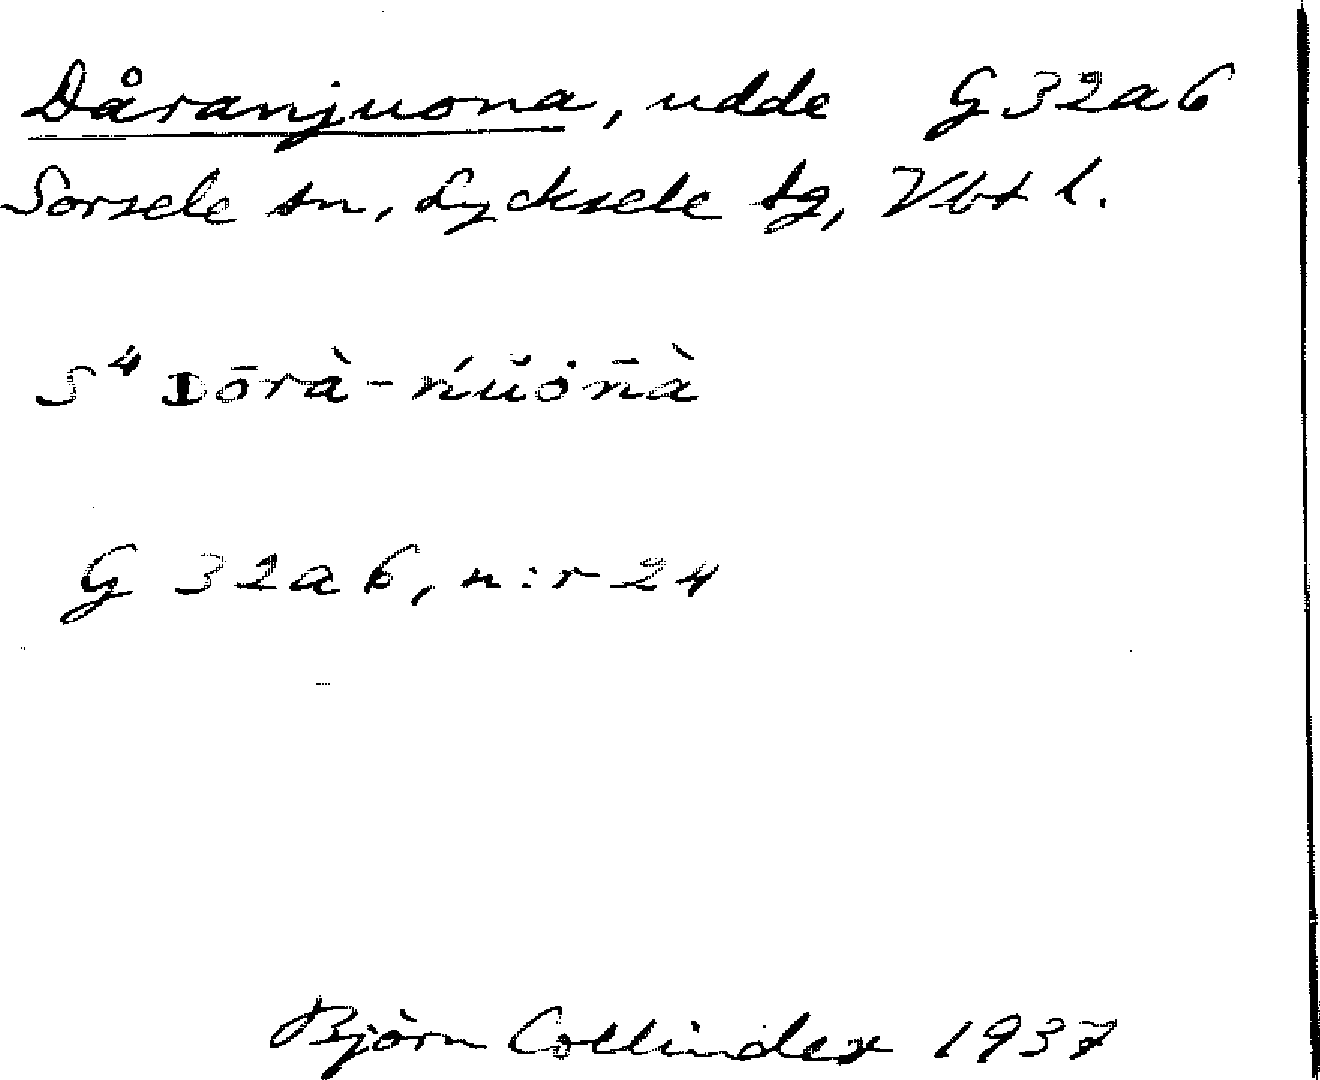 Dåranjuona, udde G32a6
Sorsele sn, Lycksele tg, Vbt l.
S⁴ Dōrà-ńŭȯn̄à
G 32a6, n:r 24
Björn Collinder 1937